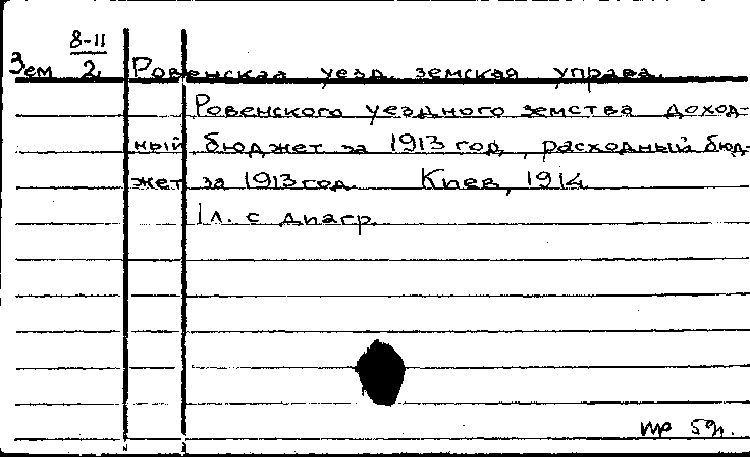 8-11
Зем 2 Ровенская уезд. земская управа.
Ровенского уездного земства доход-
ный бюджет за 1913 год, расходный бюд-
жет за 1913 год. Киев, 1914
1 л. с диагр.